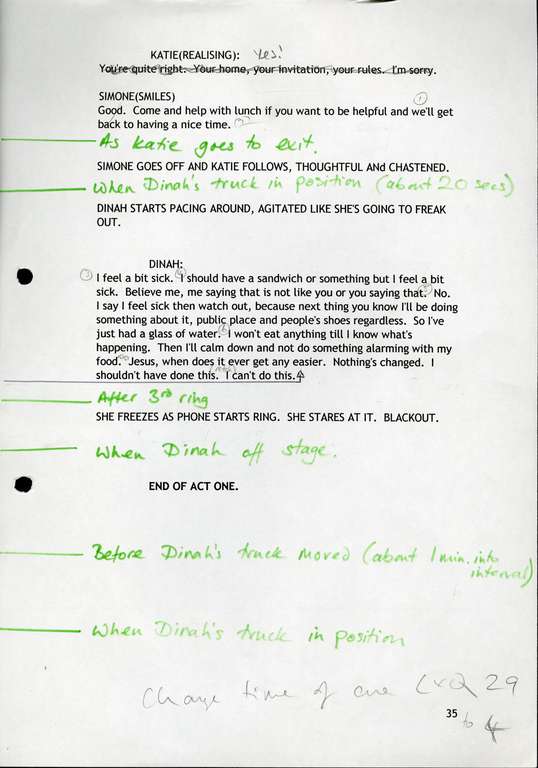 KATIE(REALISING): Yes!
You're quite right. Your home, your invitation, your rules. I'm sorry.
SIMONE(SMILES)
①
Good. Come and help with lunch if you want to be helpful and we'll get
back to having a nice time.
As Katie goes to exit.
SIMONE GOES OFF AND KATIE FOLLOWS, THOUGHTFUL ANd CHASTENED.
When Dinah's truck in position (about 20 secs)
DINAH STARTS PACING AROUND, AGITATED LIKE SHE'S GOING TO FREAK
OUT.
DINAH:
③ I feel a bit sick. I should have a sandwich or something but I feel a bit
sick. Believe me, me saying that is not like you or you saying that. No.
I say I feel sick then watch out, because next thing you know I'll be doing
something about it, public place and people's shoes regardless. So I've
just had a glass of water. I won't eat anything till I know what's
happening. Then I'll calm down and not do something alarming with my
food. Jesus, when does it ever get any easier. Nothing's changed. I
shouldn't have done this. I can't do this.
After 3rd ring
SHE FREEZES AS PHONE STARTS RING. SHE STARES AT IT. BLACKOUT.
When Dinah off stage.
END OF ACT ONE.
Before Dinah's truck moved (about 1 min. into
interval)
When Dinah's truck in position
Change time of cue LXQ 29
35
to 4